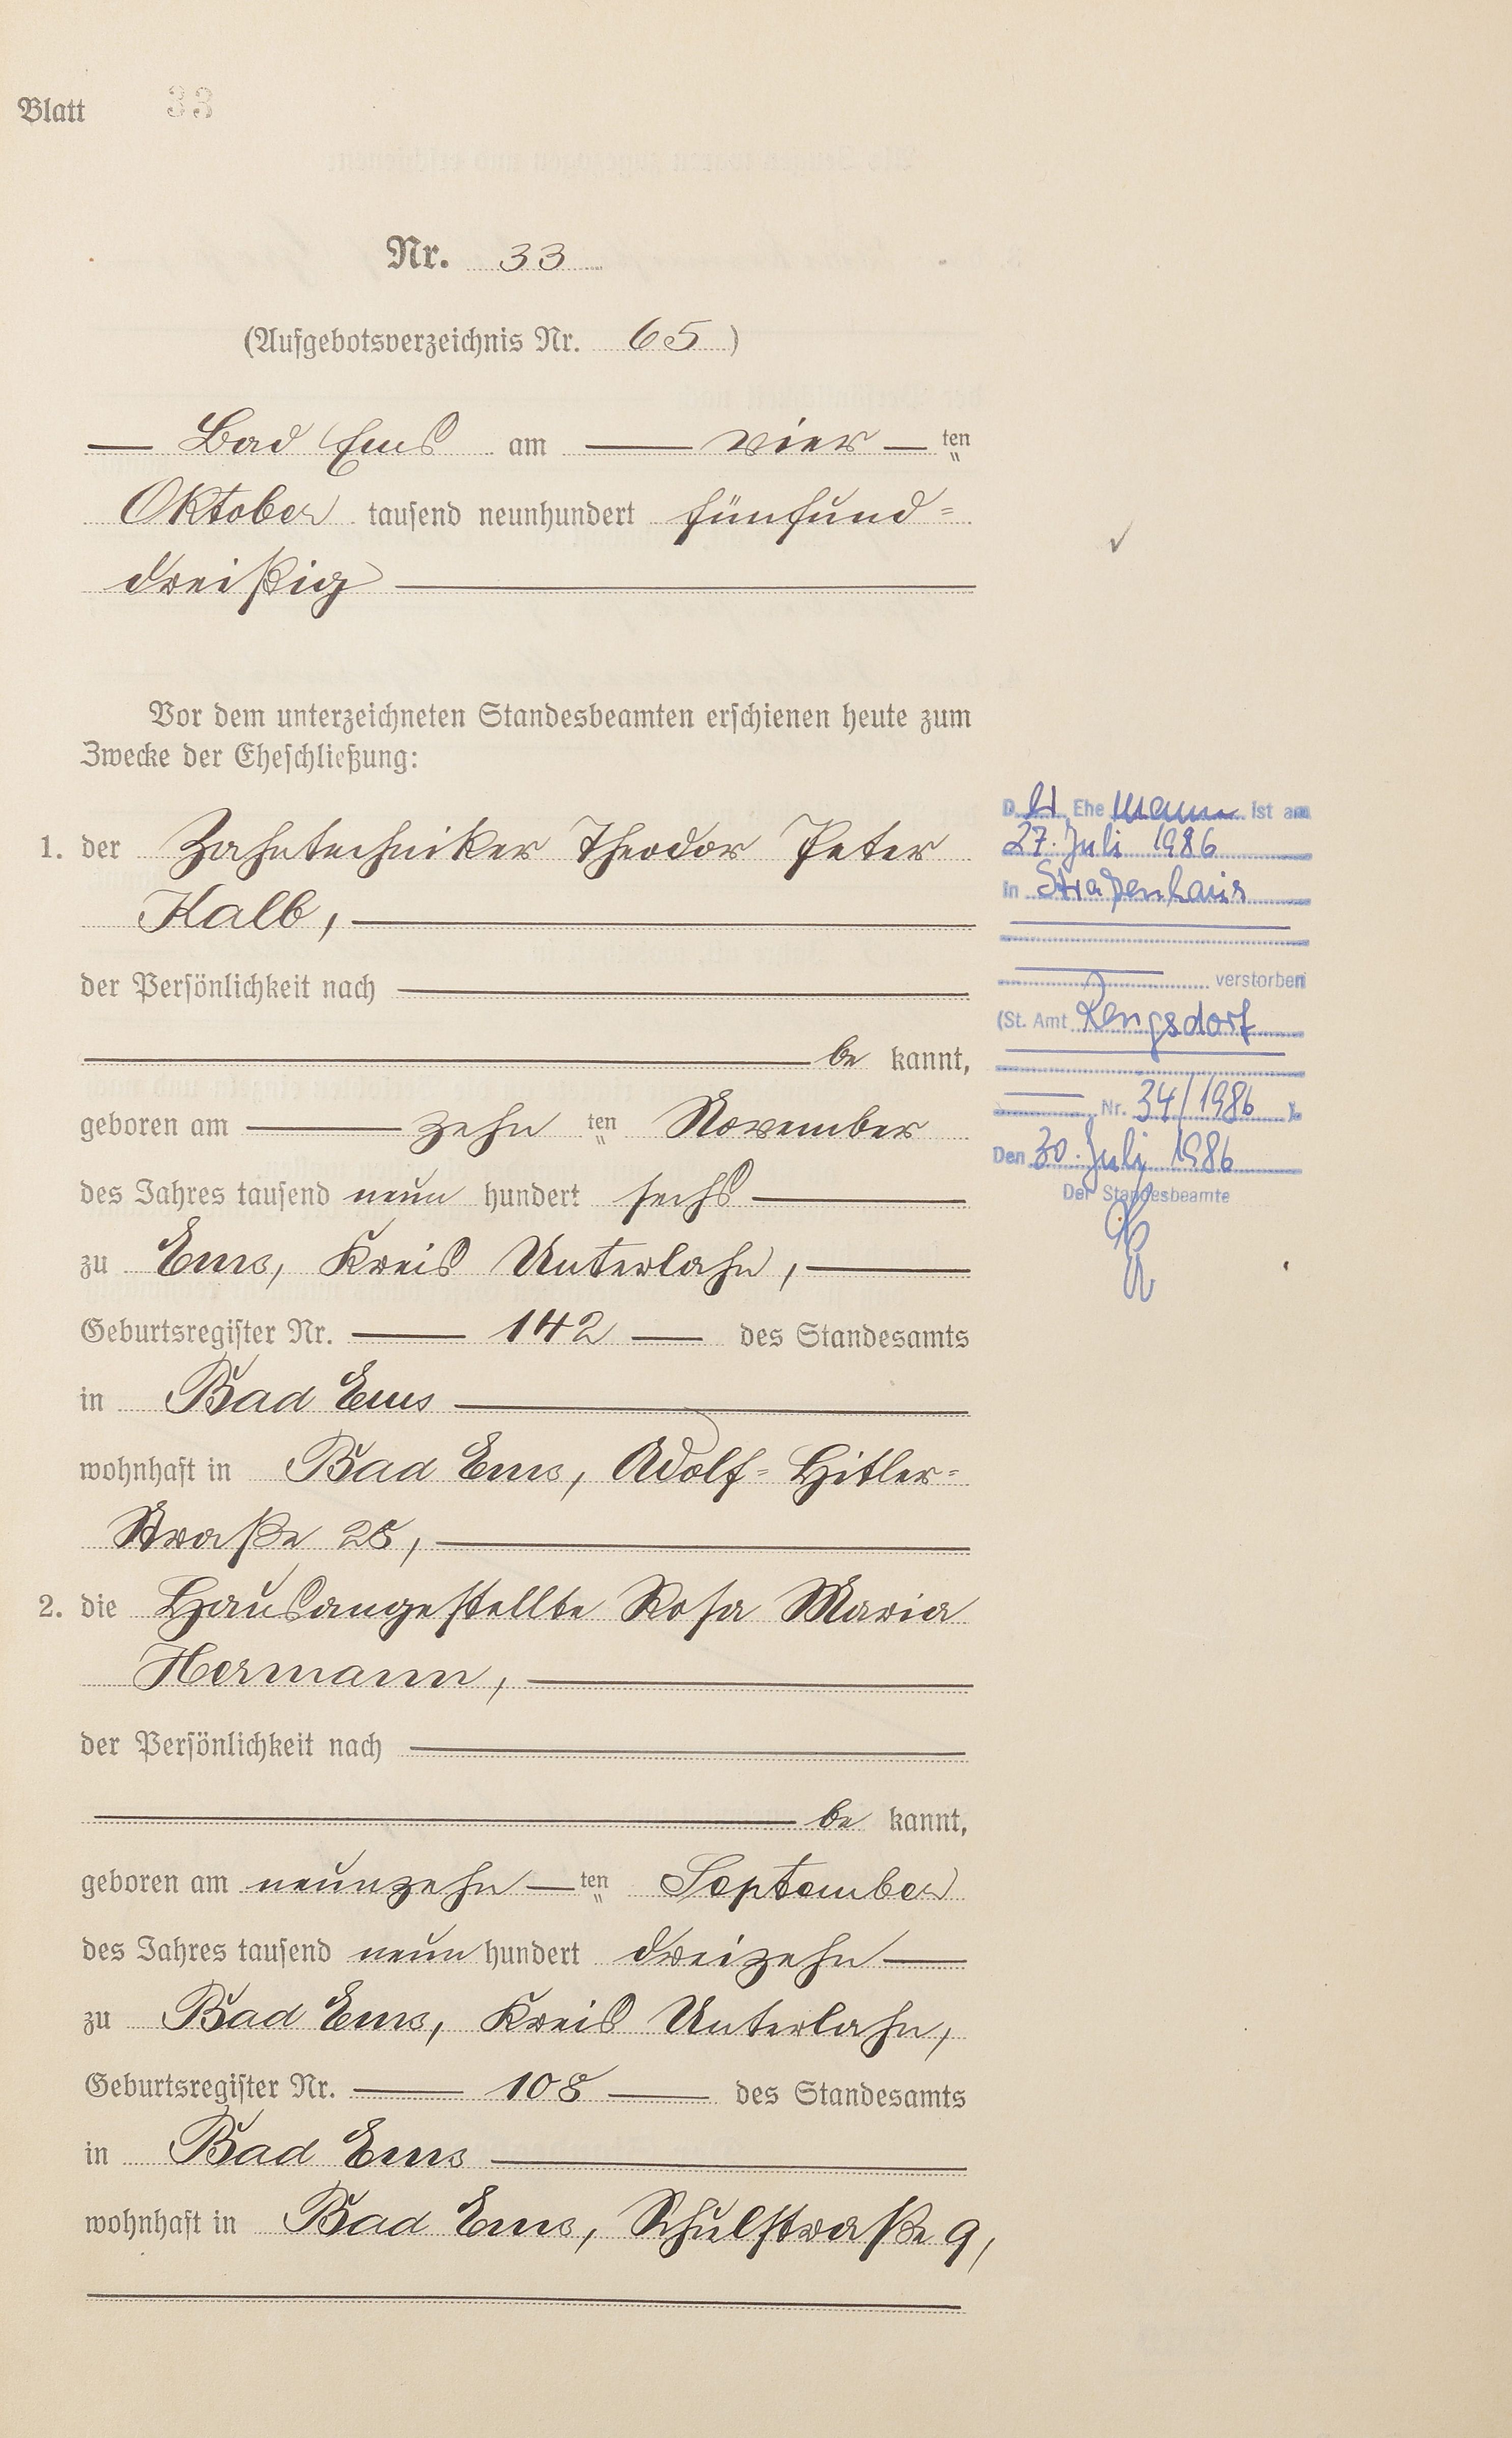 Blatt 33
Nr. 33
(Aufgebotsverzeichnis Nr. 65)
Bad Ems am vier ten
Oktober tausend neunhundert fünfund=
dreißig
Vor dem unterzeichneten Standesbeamten erschienen heute zum
Zwecke der Eheschließung:
1. der Zahntechniker Theodor Peter
Kalb,
der Persönlichkeit nach
be kannt,
geboren am zehn ten November
des Jahres tausend neun hundert sechs
zu Ems, Kreis Unterlahn,
Geburtsregister Nr. 142 des Standesamts
in Bad Ems
wohnhaft in Bad Ems, Adolf=Hitler=
Straße 25,
2. die Hausangestellte Rosa Maria
Hermann,
der Persönlichkeit nach
be kannt,
geboren am neunzehn ten September
des Jahres tausend neun hundert dreizehn
zu Bad Ems, Kreis Unterlahn,
Geburtsregister Nr. 108 des Standesamts
in Bad Ems
wohnhaft in Bad Ems, Schulstraße 9,
D er Ehe mann ist am
27. Juli 1986
in Straßenhaus
verstorben
(St. Amt Rengsdorf
Nr. 34/1986 ).
Den 30. Juli 1986
Der Standesbeamte